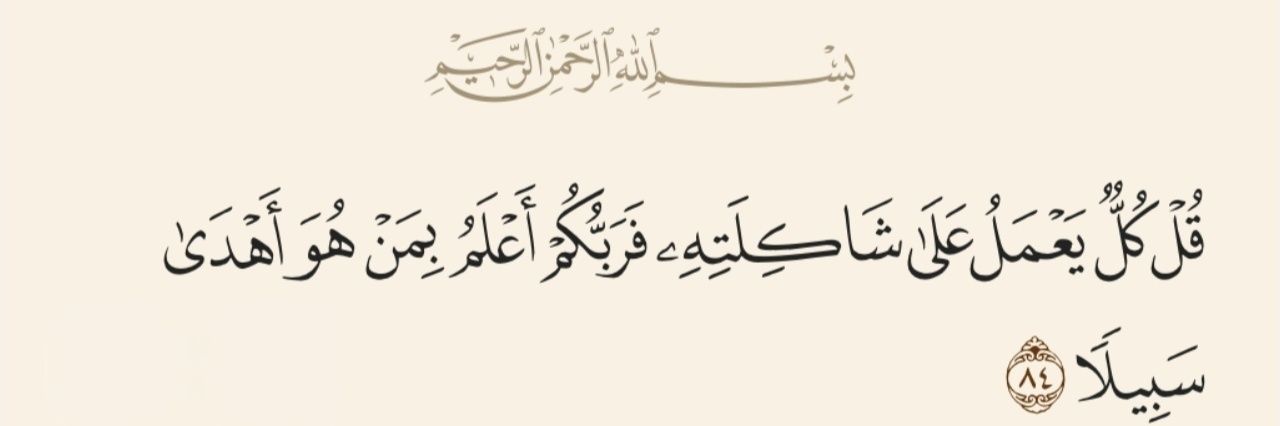 بِسْمِ ٱللَّهِ ٱلرَّحْمَٰنِ ٱلرَّحِيمِ
قُلْ كُلٌّ يَعْمَلُ عَلَىٰ شَاكِلَتِهِۦ فَرَبُّكُمْ أَعْلَمُ بِمَنْ هُوَ أَهْدَىٰ
سَبِيلًا ٨٤